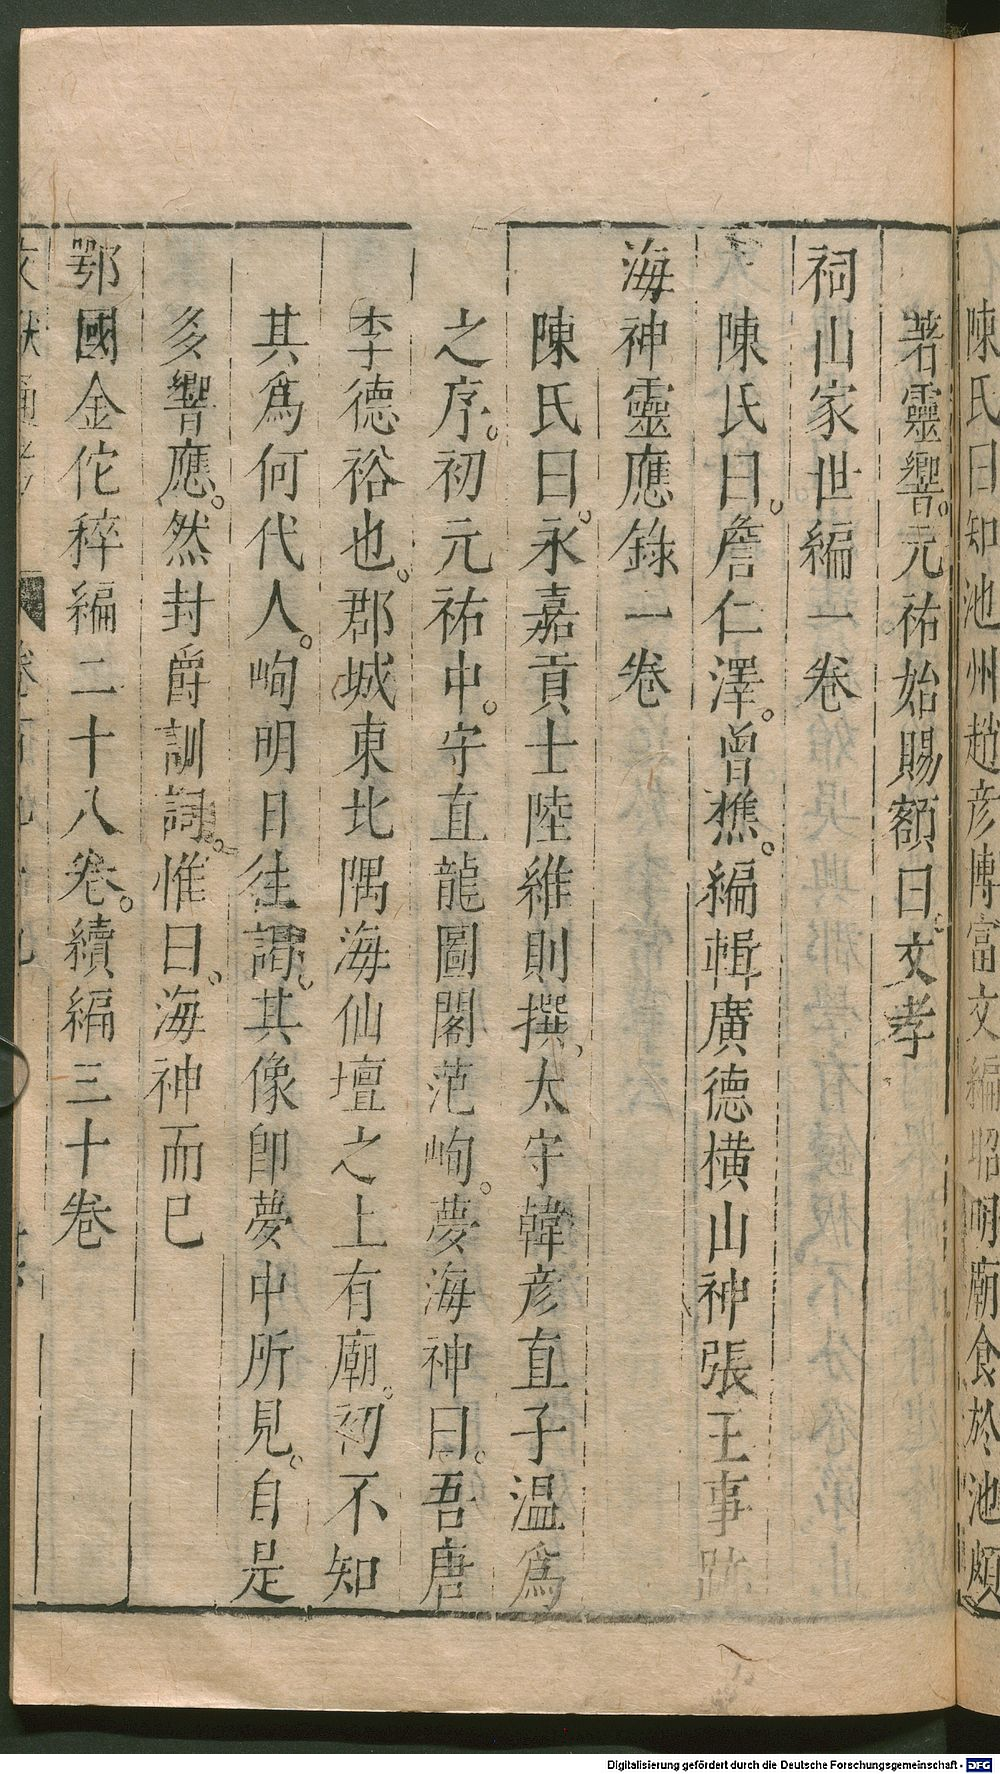 陳氏曰知池州趙彥博富文編昭明廟食於池頗
著靈響。元祐始賜額曰。文孝
祠山家世編一卷
陳氏曰。詹仁澤。曾樵。編輯廣德橫山神張王事跡
海神靈應錄一卷
陳氏曰。永嘉貢士陸維則撰、太守韓彦直子溫爲
之序。初元祐中。守直龍圖閣范峋。夢海神曰。吾唐
李德裕也。郡城東北隅海仙壇之上有廟。初不知
其爲何代人。峋明日往謁。其像卽夢中所見。自是
多響應。然封爵訓詞。惟曰。海神而已
鄂國金佗稡編二十八卷。續編三十卷
文獻通考
Digitalisierung gefördert durch die Deutsche Forschungsgemeinschaft - DFG